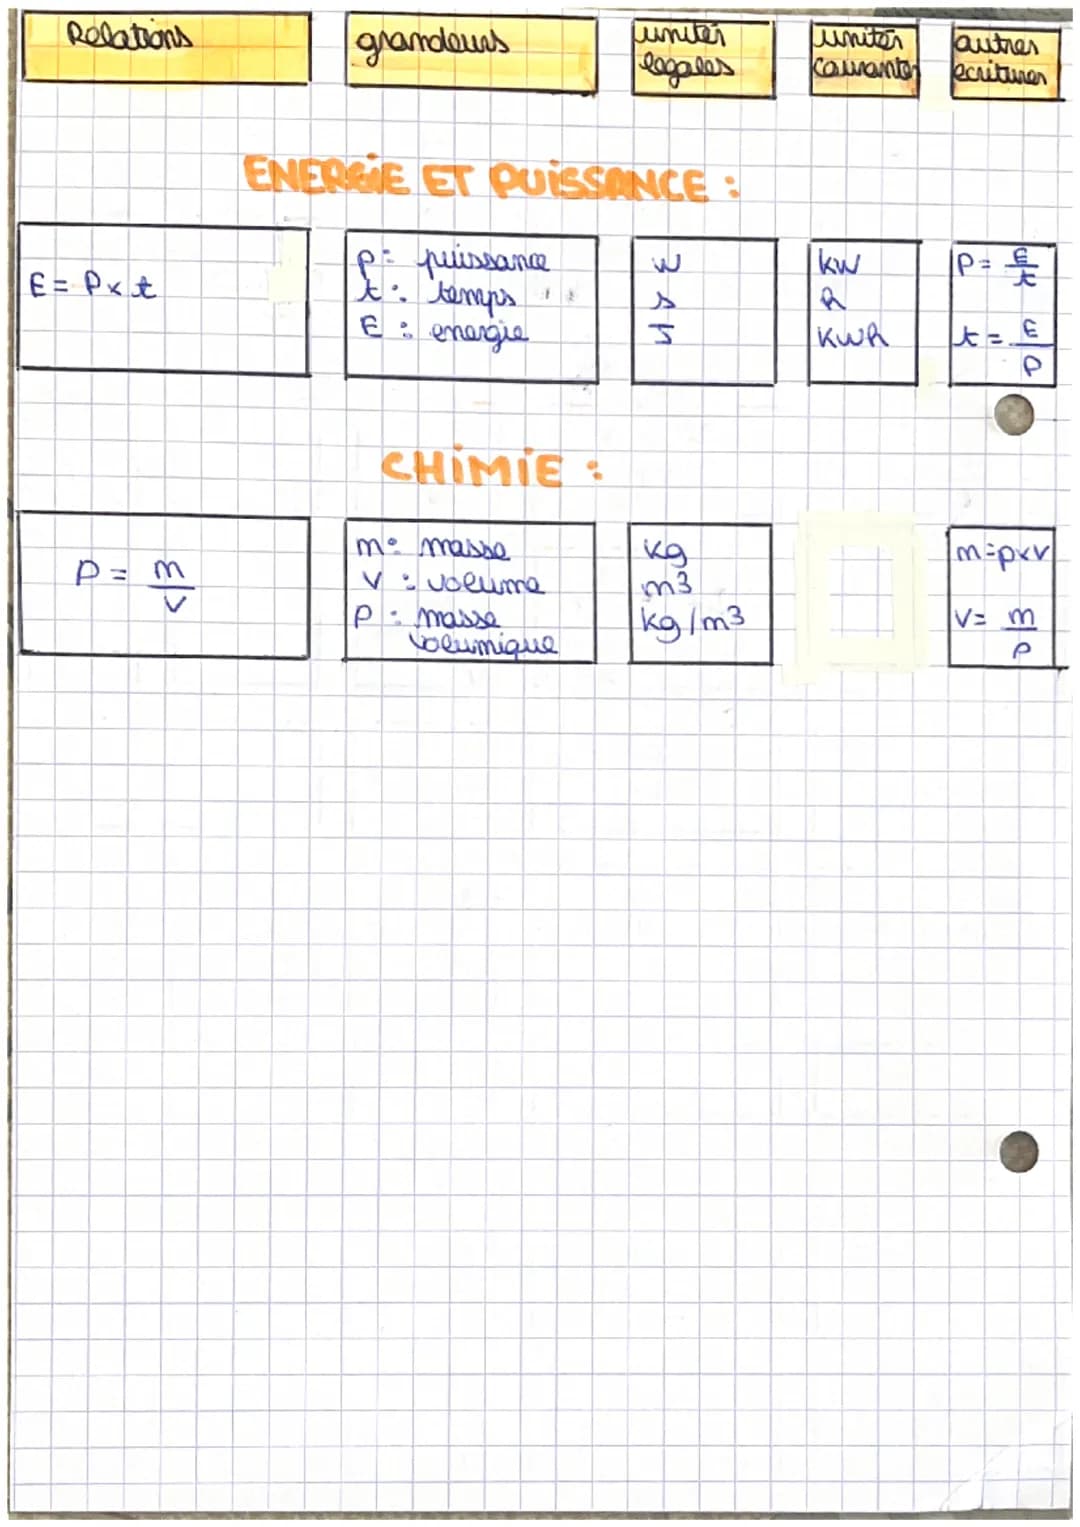 Relations grandeurs unités légales unités courantes autres ecritures
ENERGIE ET PUISSANCE :
E = P x t
P : puissance
t : temps
E : energie
W
s
J
kW
h
kWh
P = E/t
t = E/P
CHIMIE :
P = m/V
m : masse
V : volume
P : masse
volumique
kg
m3
kg/m3
m=pxv
V = m/P